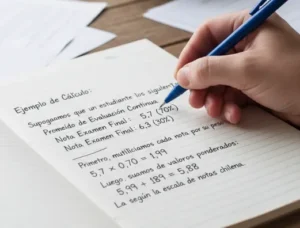 Ejemplo de Cálculo:
Supogamos que un estudiante los siguien
Promeido de Evaluación Continua
Nota Examen Final : 5,7 (70%)
Nota Examen Final: 6,3 (30%)
Primetro, mutiliciamos cada nota por su
5,7 × 0,70 = 1,99
Luego suamos de valores ponderados:
5,99 + 189 = 5,88
La según la escala de notas chilena.